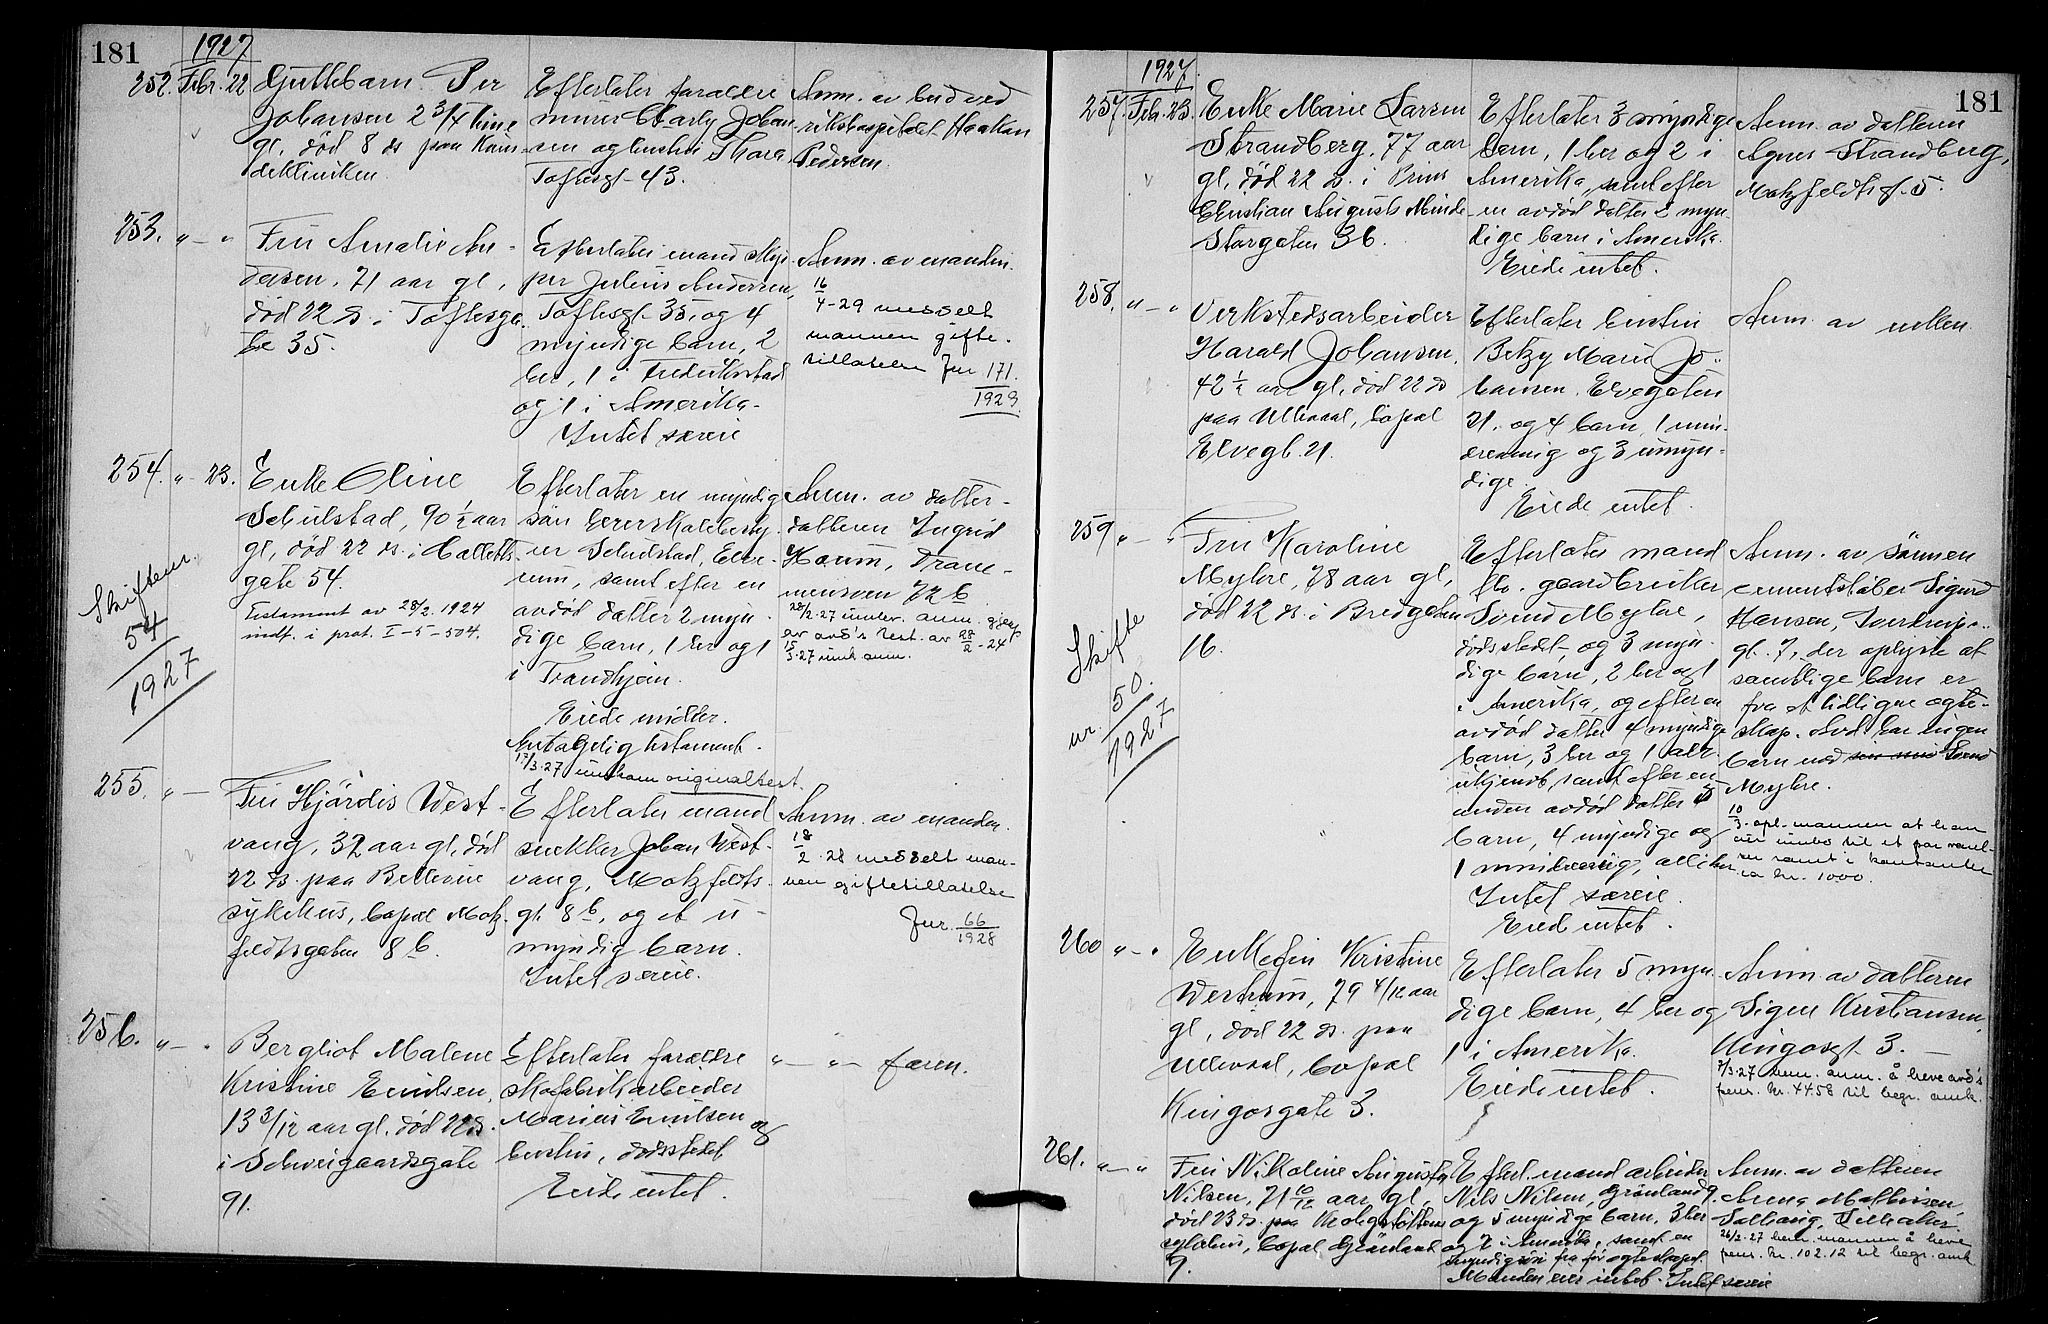 181
1927
252. Febr. 22
Guttebarn Per
Johansen 2 3/4 time
gl. død 8 ds paa Kvin-
deklinikken.
Efterlater foreldre
murer Charly Johan-
sen og hustru Thora
Toftesgt 43.
Anm. av bud ved
rikshospitalet Haakon
Pedersen.
253. " — "
Fru Amalie An-
dersen, 71 aar gl,
død 22 ds. i Toftesga-
te 35.
Efterlater mand skip-
per Julius Andersen,
Toftesgt 35, og 4
myndige barn, 2
her, 1 i Fredrikstad
og 1 i Amerika.
Intet særeie
Anm. av manden.
16/4-29 meddelt
mannen gifte-
tillatelse Jur 171.
1929.
254. " - 23.
Skiftenr.
54
1927
Enke Oline
Schulstad, 90 1/2 aar
gl, død 22 ds. i Calletts
gate 54.
Testament av 28/2 1924
indf. i prot. I - 5 - 504.
Efterlater en myndig
søn herredskasserer
Schulstad, Elve-
rum, samt efter en
avdød datter 2 myn-
dige barn, 1 her og 1
i Trondhjem.
Eiede midler.
Antagelig testament.
17/3.27 innkom originaltest.
Anm. av datter-
datteren Ingrid
Houm, Dram-
mensven 72 b
28/2.27 innlev. anm. gjenp
av avd's test. av 28/2-24
15/3.27 innk. anm.
255. " —
Fru Hjördis West-
vang, 32 aar gl, død
22 ds. paa Bellevue
sykehus, bopæl Motz-
feldtsgaten 8 b.
Efterlater mand
snekker Johan West-
vang, Motzfeldts-
gt 8 b, og et u-
myndig barn.
Intet særeie.
Anm. av manden.
18/2.28 meddelt man-
nen giftetillatelse
Jur. 66
1928
256. " — "
Bergliot Malene
Kristine Emilsen,
13 3/12 aar gl. død 22 ds.
i Schweigaardsgate
91.
Efterlater foreldre
skofabrikarbeider
Marius Emilsen og
hustru, dødsstedet
Eiede intet.
" — " — faren.
181
1927.
257. Febr. 23.
Enke Marie Larsen
Strandberg, 77 aar
gl, død 22 ds. i Prins
Christian Augusts Minde
Storgaten 36.
Efterlater 3 myndige
barn, 1 her og 2 i
Amerika, samt efter
en avdød datter 2 myn-
dige barn i Amerika.
Eiede intet.
Anm. av datteren
Agnes Strandberg,
Motzfeldtsgt. 5.
258. " — "
Verkstedsarbeider
Harald Johansen,
42 1/2 aar gl, død 22 ds
paa Ullevaal, bopæl
Elvegt. 21.
Efterlater hustru
Betzy Marie Jo-
hansen, Elvegaten
21. og 4 barn, 1 min-
dreaarig og 3 umyn-
dige.
Eiede intet.
Anm. av enken.
259 " — "
Skifte
nr. 50.
1927
Fru Karoline
Myhre, 78 aar gl,
død 22 ds. i Bredgaten
16.
Efterlater mand
fhv. gaardbruker
Svend Myhre,
dødsstedet, og 3 myn-
dige barn, 2 her og 1
i Amerika, og efter en
avdød datter 4 myndige
barn, 3 her og 1 adr.
ukjendt, samt efter en
anden avdød datter 5
barn, 4 myndige og
1 mindreaarig, alle her
Intet særeie.
Eiede intet.
Anm. av sønnen
cementstøber Sigurd
Hansen, Sverdrups-
gt. 7, der oplyste at
samtlige barn er
fra et tidligere egte-
skap. Avd har ingen
barn med Svend
Myhre.
10/3. opl. mannen at han
eier innbo til et par værel-
ser samt i kontanter
ca kr. 1000.
260 " — "
Enkefru Kristine
Westrum, 79 4/12 aar
gl, død 22 ds. paa
Ullevaal, bopæl
Kingosgate 3.
Efterlater 5 myn-
dige barn, 4 her og
1 i Amerika.
Eiede intet.
Anm av datteren
Signe Kristiansen,
Kingosgt 3.
2/3.27 bem. anm. å heve avd's
pens. kr. 44.58 til begr. omk.
261. " — "
Fru Nikoline Augusta
Nilsen, 71 10/12 aar gl,
død 23 ds. paa Krohgstøttens
sykehus, bopæl Grønland
9.
Efterl. mand arbeider
Nils Nilsen, Grønland 9,
og 5 myndige barn, 3 her
og 2 i Amerika, samt en
myndig søn fra før egteskapet.
Manden eier intet. Intet særeie
Anm. av datteren
Anna Mathisen,
26/2.27 bem. mannen å heve
pens. kr. 102.12 til begr. omk